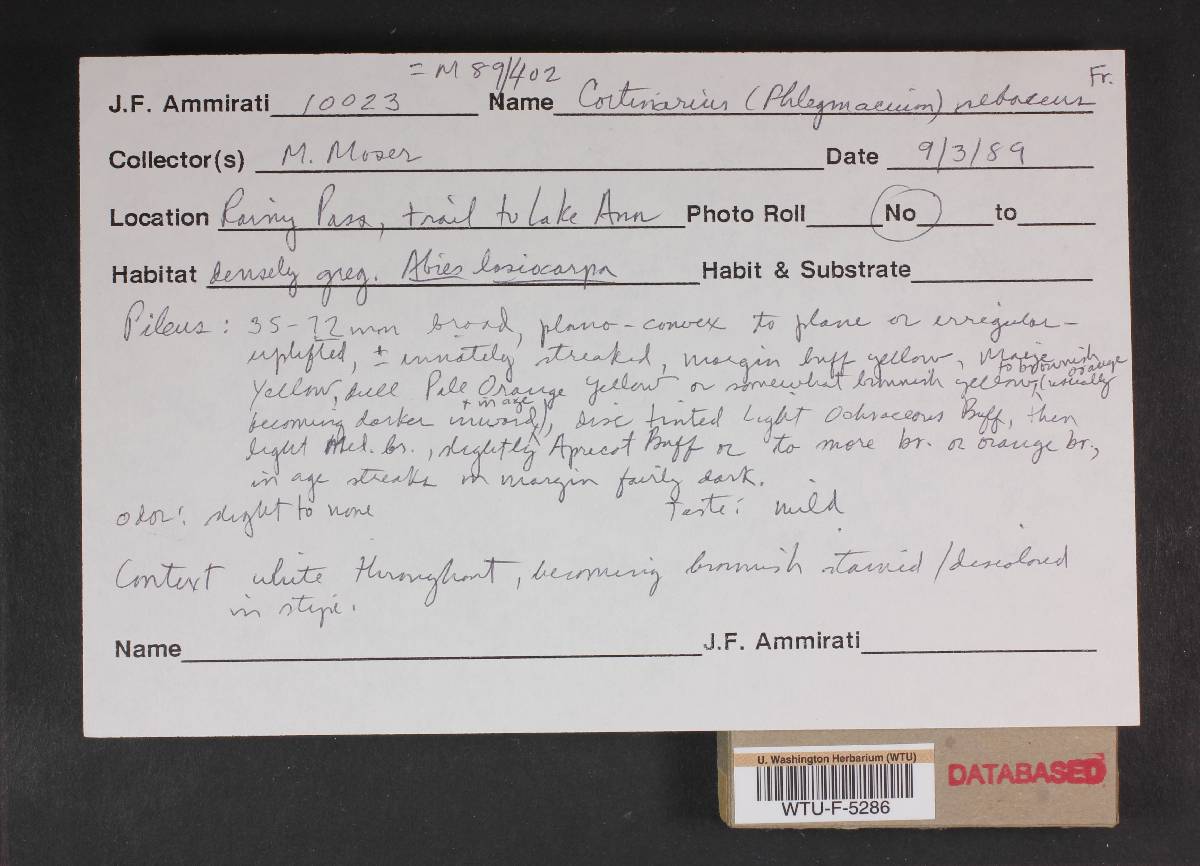 = M 89/402
Fr.
J.F. Ammirati 10023 Name Cortinarius (Phlegmacium) sebaceus
Collector(s) M. Moser Date 9/3/89
Location Rainy Pass, trail to Lake Ann Photo Roll No to
Habitat densely greg. Abies lasiocarpa Habit & Substrate
Pileus: 35-72 mm broad, plano-convex to plane or irregular-
uplifted, ± innately streaked, margin buff yellow, Maize
to brownish orange
Yellow, dull Pale Orange Yellow or somewhat brownish yellow (usually
+ in age
becoming darker inward), disc tinted Light Ochraceous Buff, then
light Med. br., slightly Apricot Buff or to more br. or orange br.,
in age streaks on margin fairly dark.
odor: slight to none Taste: mild
Context white throughout, becoming brownish stained/discolored
in stipe.
Name J.F. Ammirati
U. Washington Herbarium (WTU)
WTU-F-5286
DATABASED